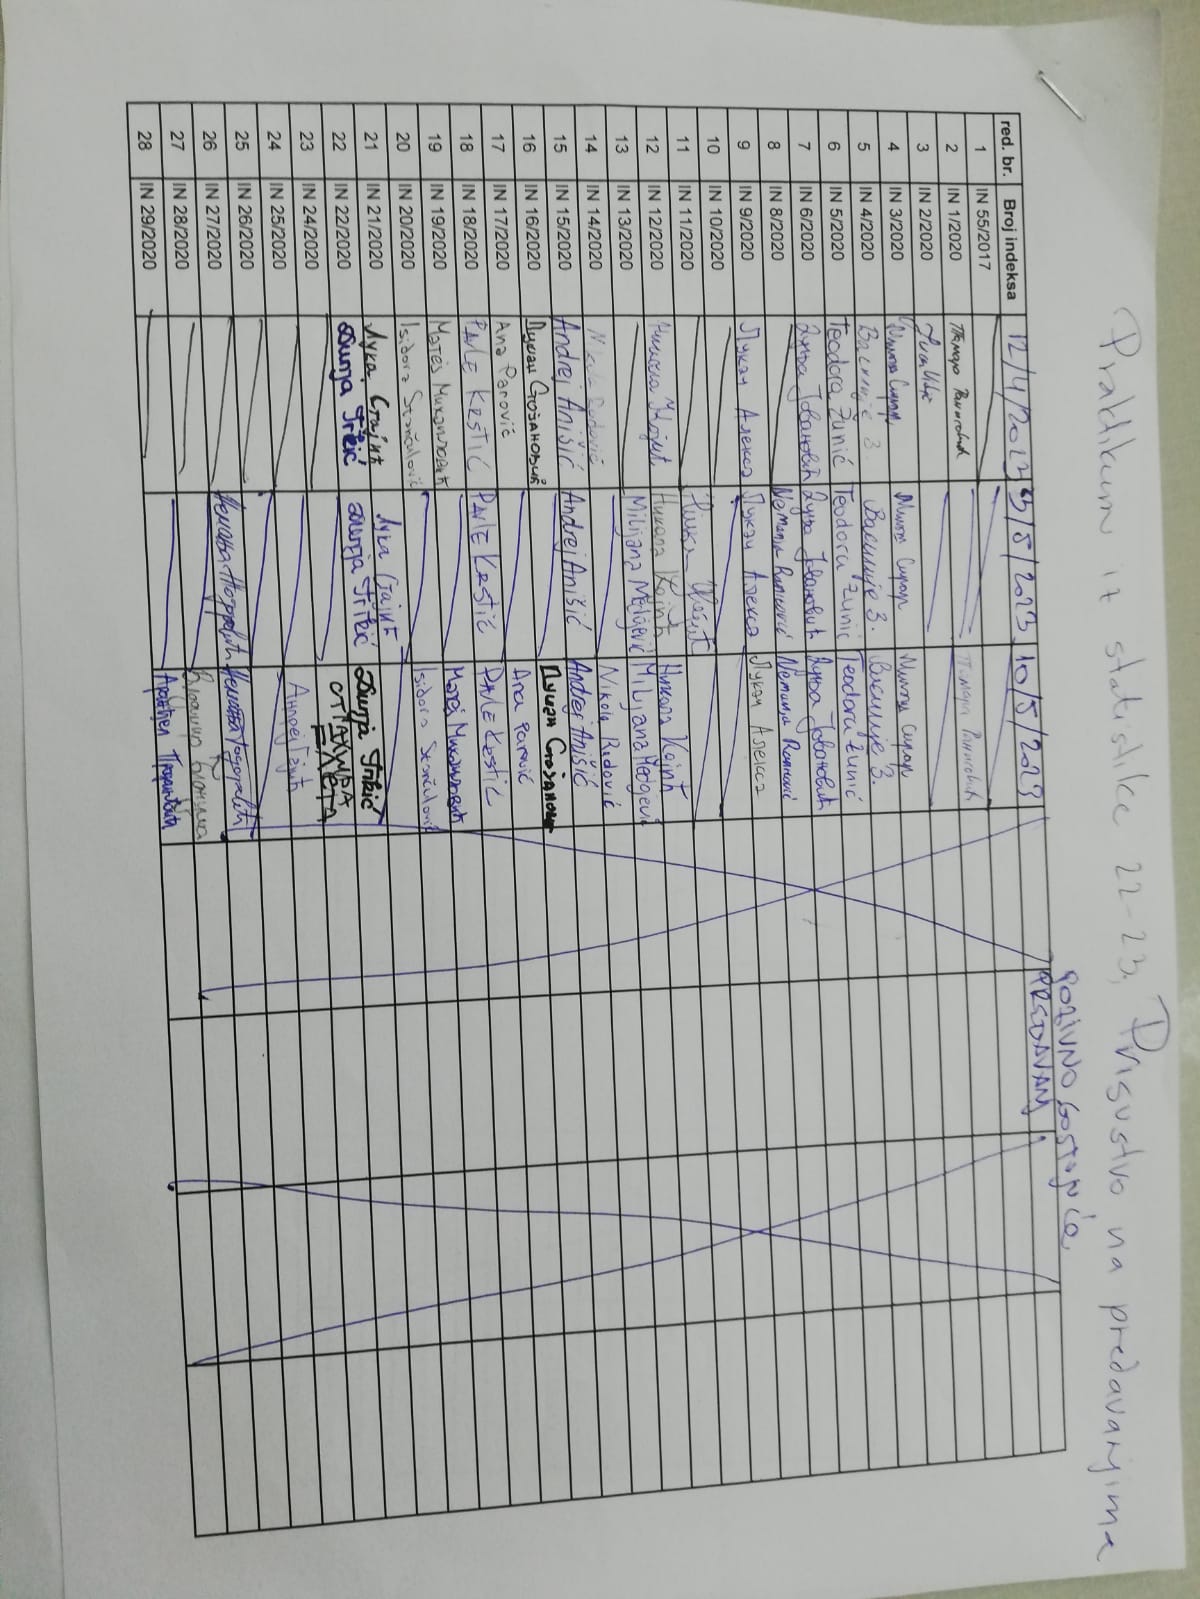 Praktikum iz statistike 22-23, Prisustvo na predavanjima
POZIVNO
PREDAVANJ
red. br. Broj indeksa 12/4/2023 3/5/2023 10/5/2023
1 IN 55/2017
2 IN 1/2020 Тамара Ранисовић Тамара Ранисовић
3 IN 2/2020
4 IN 3/2020 Милош Сирар Милош Сирар Милош Сирар
5 IN 4/2020 Василије З. Василије З. Василије З.
6 IN 5/2020 Teodora Žunić Teodora Žunić Teodora Žunić
7 IN 6/2020 Дуња Јовановић Дуња Јовановић Дуња Јовановић
8 IN 8/2020 Nemanja Nemanja
9 IN 9/2020 Лукач Алекса Лукач Алекса Лукач Алекса
10 IN 10/2020
11 IN 11/2020
12 IN 12/2020 Никола Којић Никола Којић Никола Којић
13 IN 13/2020 Milijana Medgević Milijana Medgević
14 IN 14/2020 Nikola Radović Nikola Radović
15 IN 15/2020 Andrej Anišić Andrej Anišić Andrej Anišić
16 IN 16/2020 Душан Стојановић Душан Стојанович
17 IN 17/2020 Ana Parović Ana Parović
18 IN 18/2020 PAVLE KRSTIĆ PAVLE KRSTIĆ PAVLE KRSTIĆ
19 IN 19/2020 Матеј Михаиловић Матеј Михаиловић
20 IN 20/2020 Isidora Stančulović Isidora Stančulović
21 IN 21/2020 Лука Стајић Лука Стајић
22 IN 22/2020 Dunja Trkić Dunja Trkić Dunja Trkić
23 IN 24/2020
24 IN 25/2020 Андреј Гајић
25 IN 26/2020
26 IN 27/2020 Немања Тодоровић Немања Тодоровић
27 IN 28/2020 Владимир
28 IN 29/2020 Аранђел